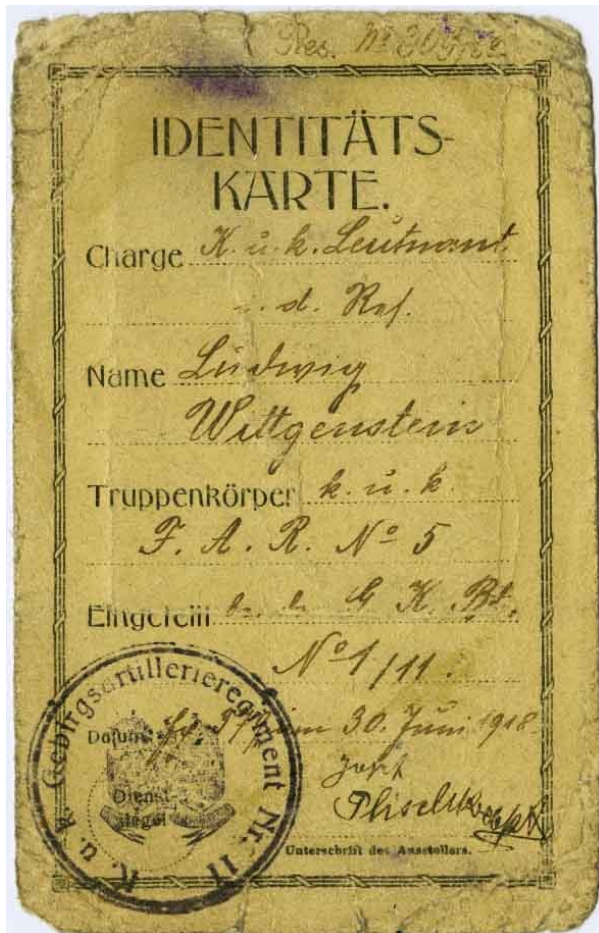 Res. Nº
IDENTITÄTS-
KARTE.
Charge K. u. k. Leutnant
i. d. Res.
Name Ludwig
Wittgenstein
Truppenkörper k. u. k.
F. A. R. Nº 5
Eingeteilt G. K. Bt.
Nº 1/11.
Datum 30. Juni 1918
Josef
Unterschrift des Ausstellers.
K. u. k. Gebirgsartillerieregiment Nr. 11
Dienst-
siegel